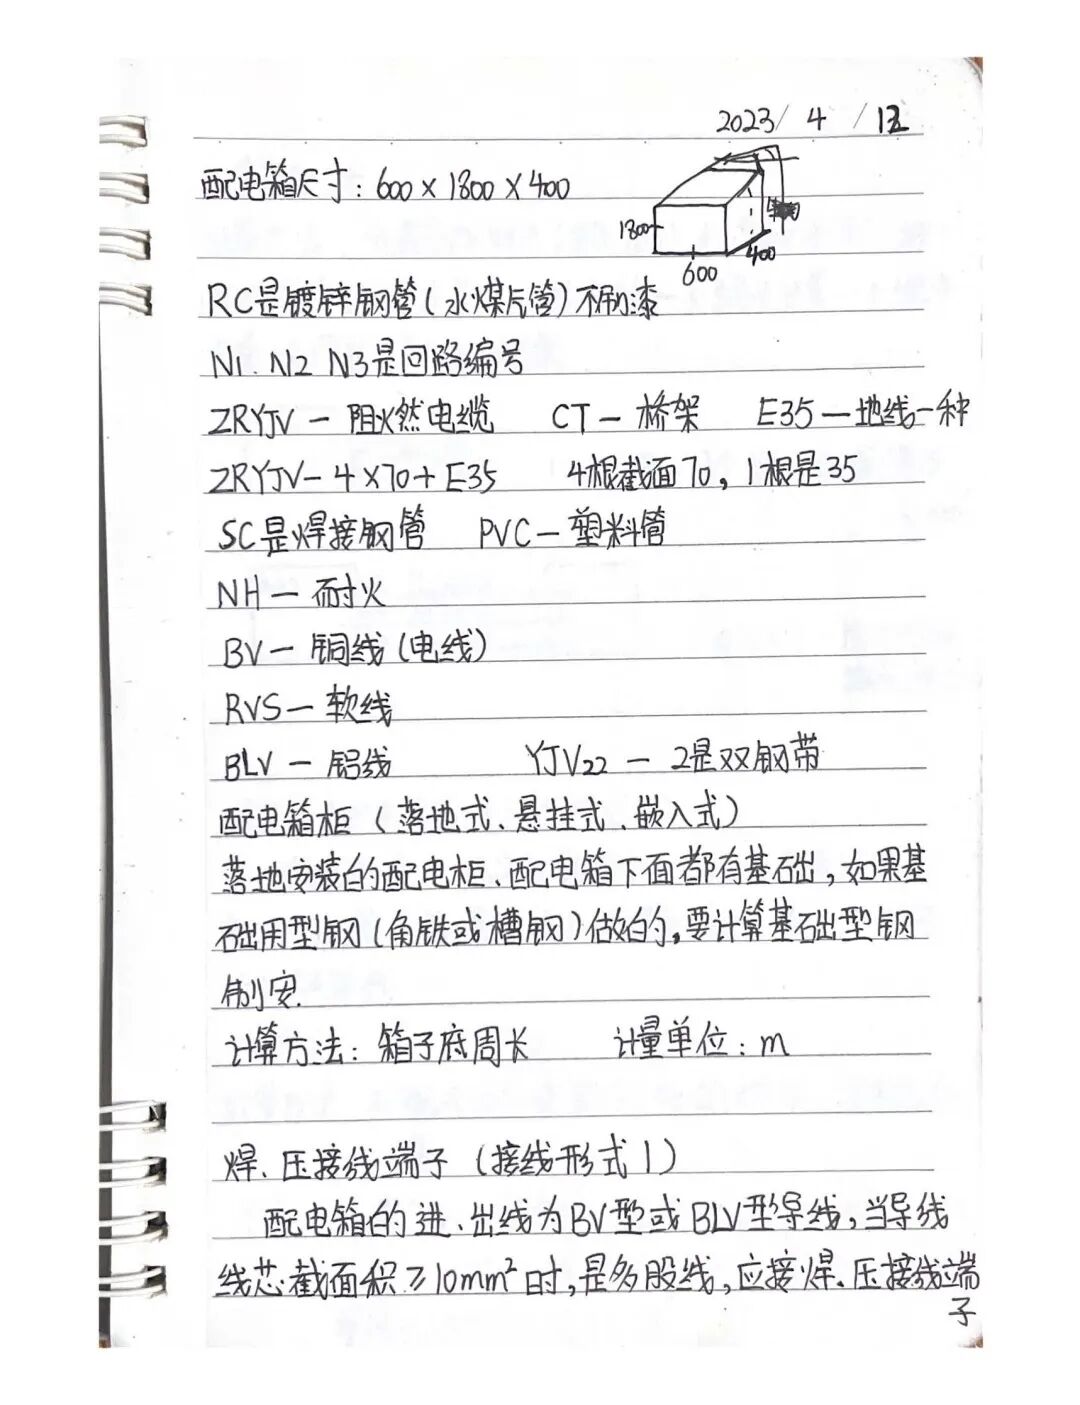 2023/ 4 /
配电箱尺寸：600×1800×400
1800
600
400
RC是镀锌钢管(水煤气管)不刷漆
N1. N2 N3是回路编号
ZRYJV — 阻燃电缆 CT — 桥架 E35 — 地线一种
ZRYJV-4×70+E35 4根截面70，1根是35
SC是焊接钢管 PVC — 塑料管
NH — 耐火
BV — 铜线(电线)
RVS — 软线
BLV — 铝线 YJV22 — 2是双钢带
配电箱柜(落地式、悬挂式、嵌入式)
落地安装的配电柜、配电箱下面都有基础，如果基
础用型钢(角铁或槽钢)做的，要计算基础型钢
制安.
计算方法：箱子底周长 计量单位：m
焊、压接线端子(接线形式1)
配电箱的进、出线为BV型或BLV型导线，当导线
线芯截面积≥10mm²时，是多股线，应接焊、压接线端
子